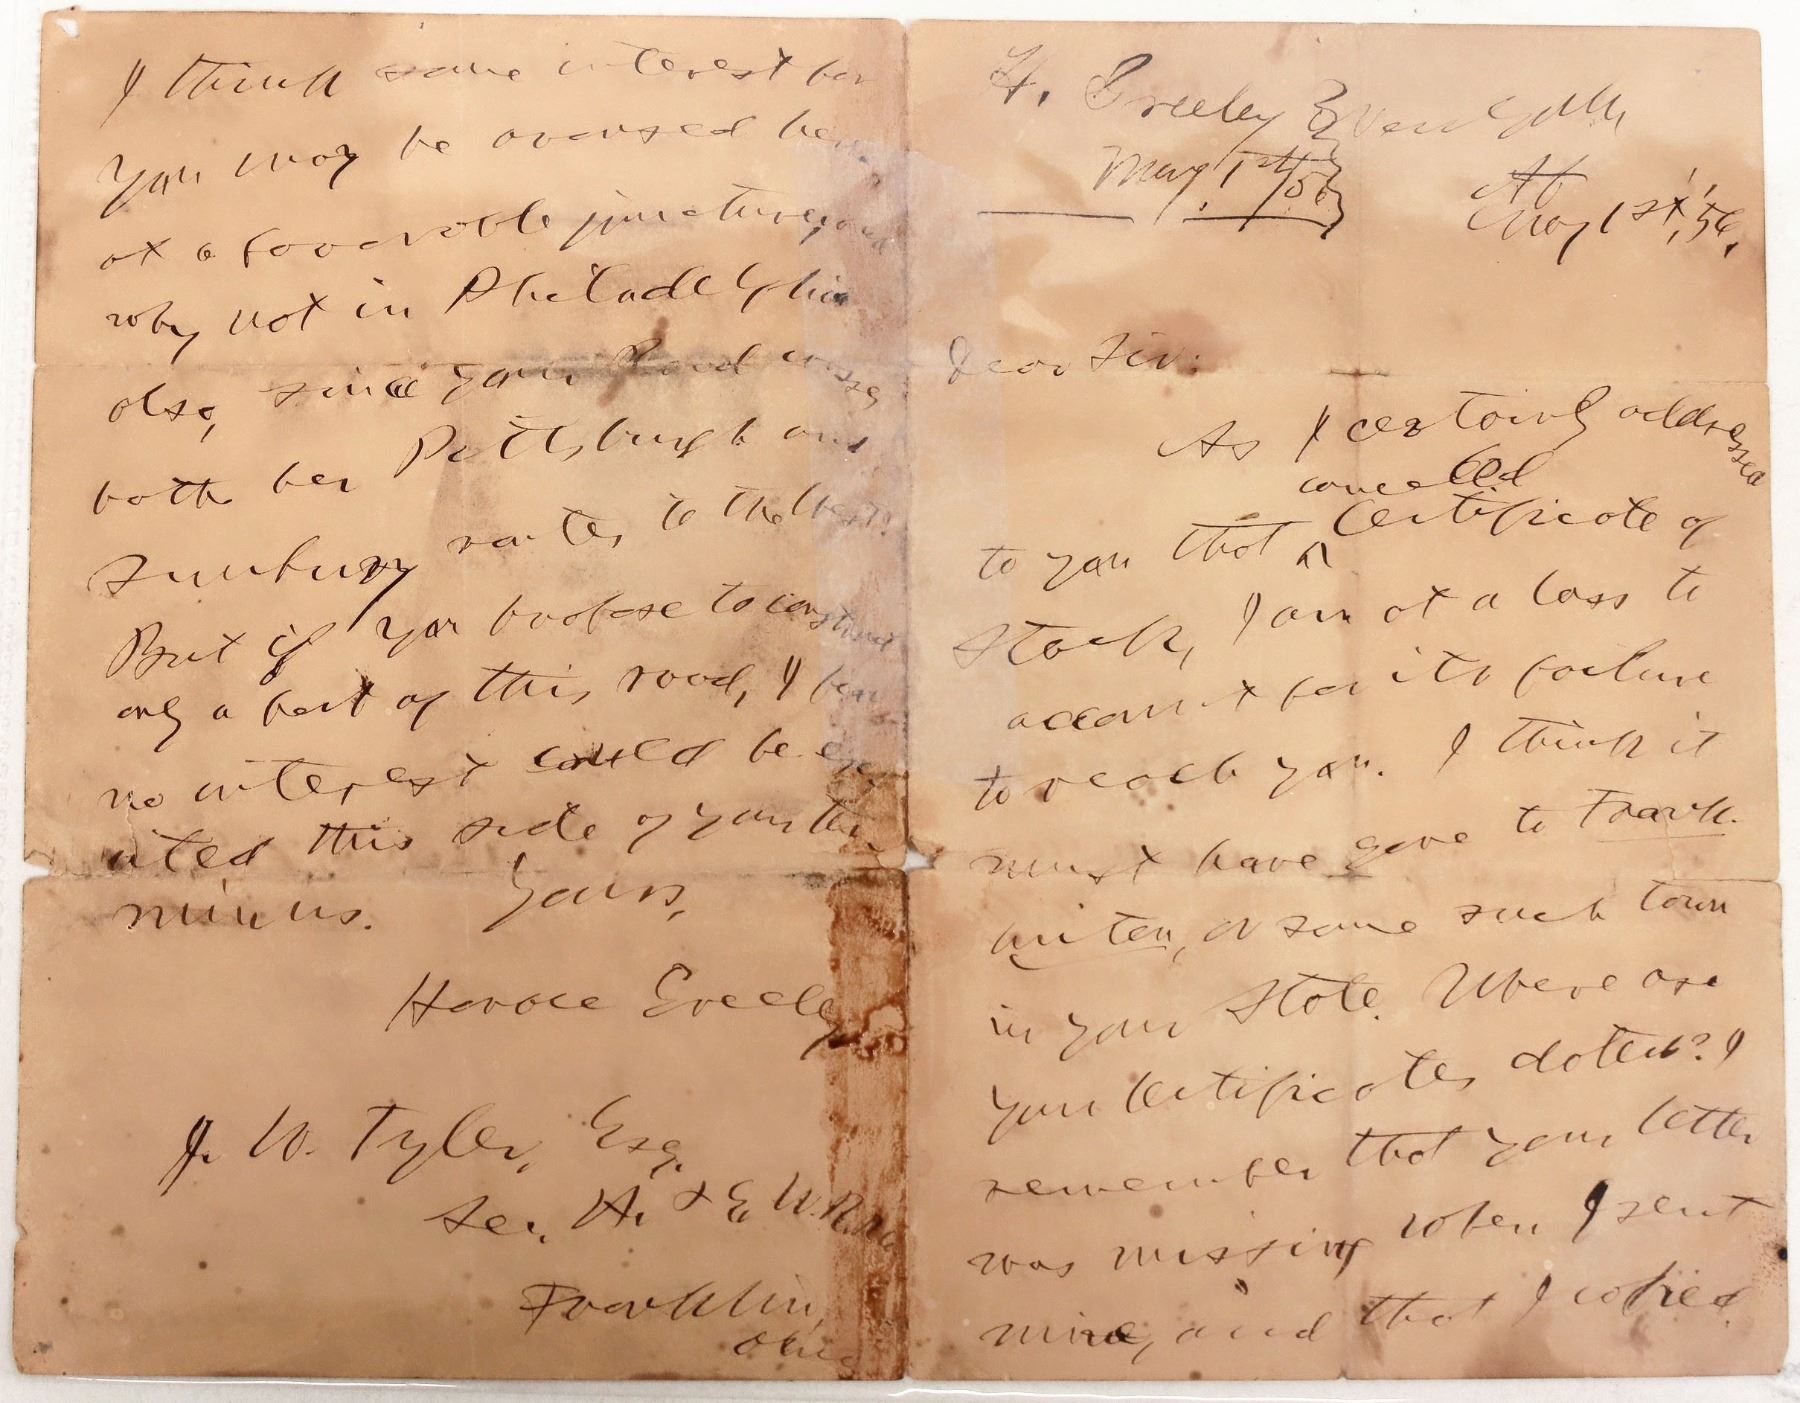 H. Greeley
May 1st/56
New York,
May 1st, '56.
Dear Sir:
As I certainly addressed
cancelled
to you that ^ Certificate of
Stock, I am at a loss to
account for its failure
to reach you. I think it
must have gone to Frank-
linton, or some such town
in your State. Where are
your Certificates dated? I
remember that your letter
was missing when I sent
mine, and that I copied
I think some interest for
you may be aroused here
at a favorable juncture, and
why not in Philadelphia
also, since your Road
both her Pittsburgh and
Sunbury routes to the West?
But if you propose to construct
only a part of this road, I fear
no interest could be
ated this side of your ter-
minus. Yours,
Horace Greeley
J. W. Tyler, Esq.
Sec.
Franklin,
Ohio